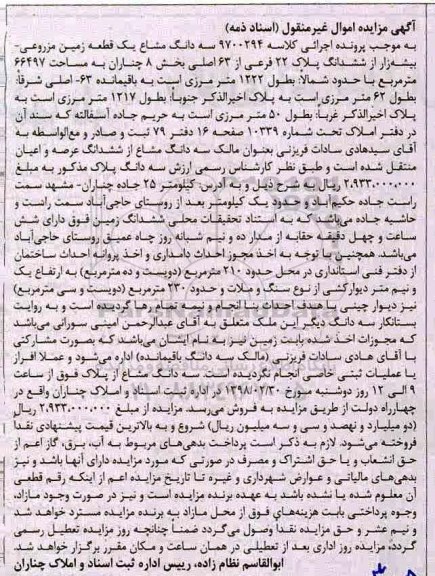 آگهی مزایده اموال غیرمنقول (اسناد ذمه)
به موجب پرونده اجرائی کلاسه ۹۷۰۰۲۹۴ سه دانگ مشاع یک قطعه زمین مزروعی-
بیشه‌زار از ششدانگ پلاک ۲۲ فرعی از ۶۳ اصلی بخش ۸ چناران به مساحت ۶۶۴۹۷
مترمربع با حدود شمالا: بطول ۱۲۲۲ متر مرزی است به باقیمانده ۶۳- اصلی شرقاً:
بطول ۶۲ متر مرزی است به پلاک اخیرالذکر جنوباً: بطول ۱۲۱۷ متر مرزی است به
پلاک اخیرالذکر غرباً: بطول ۵۰ متر مرزی است به حریم جاده آسفالته که سند آن
در دفتر املاک تحت شماره ۱۰۳۳۹ صفحه ۱۶ دفتر ۷۹ ثبت و صادر و مع‌الواسطه به
آقای سیدهادی سادات فریزنی بعنوان مالک سه دانگ مشاع از ششدانگ عرصه و اعیان
منتقل شده است و طبق نظر کارشناس رسمی ارزش سه دانگ پلاک مذکور به مبلغ
۲،۹۳۳،۰۰۰،۰۰۰ ریال به شرح ذیل و به آدرس: کیلومتر ۲۵ جاده چناران- مشهد سمت
راست جاده حکیم‌آباد و حدود یک کیلومتر بعد از روستای حاجی‌آباد سمت راست و
حاشیه جاده می‌باشد که به استناد تحقیقات محلی ششدانگ زمین فوق دارای شش
ساعت و چهل دقیقه حقابه از مدار ده و نیم شبانه روز چاه عمیق روستای حاجی‌آباد
می‌باشد. همچنین با توجه به اخذ مجوز احداث دامداری و اخذ پروانه احداث ساختمان
از دفتر فنی استانداری در محل حدود ۲۱۰ مترمربع (دویست و ده مترمربع) به ارتفاع یک و
نیم متر دیوارکشی از نوع سنگ و ملات و حدود ۲۳۰ مترمربع (دویست و سی مترمربع)
نیز دیوار چینی با هدف احداث بنا انجام و نیمه تمام رها گردیده است و به روایت
بستانکار سه دانگ دیگر این ملک متعلق به آقای عبدالرحمن امینی سورانی می‌باشد
که مجوزات اخذ شده بابت زمین نیز به نام ایشان می‌باشد که بصورت مشارکتی
با آقای هادی سادات فریزنی (مالک سه دانگ باقیمانده) اداره می‌شود و عملا افراز
یا عملیات ثبتی خاصی انجام نگردیده است. سه دانگ مشاع از پلاک فوق از ساعت
۹ الی ۱۲ روز دوشنبه مورخ ۱۳۹۸/۰۲/۳۰ در اداره ثبت اسناد و املاک چناران واقع در
چهارراه دولت از طریق مزایده به فروش می‌رسد. مزایده از مبلغ ۲،۹۳۳،۰۰۰،۰۰۰ ریال
(دو میلیارد و نهصد و سی و سه میلیون ریال) شروع و به بالاترین قیمت پیشنهادی نقدا
فروخته می‌شود. لازم به ذکر است پرداخت بدهی‌های مربوط به آب، برق، گاز اعم از
حق انشعاب و یا حق اشتراک و مصرف در صورتی که مورد مزایده دارای آنها باشد و نیز
بدهی‌های مالیاتی و عوارض شهرداری و غیره تا تاریخ مزایده اعم از اینکه رقم قطعی
آن معلوم شده یا نشده باشد به عهده برنده مزایده است و نیز در صورت وجود مازاد،
وجوه پرداختی بابت هزینه‌های فوق از محل مازاد به برنده مزایده مسترد خواهد شد
و نیم عشر و حق مزایده نقداً وصول می‌گردد ضمناً چنانچه روز مزایده تعطیل رسمی
گردد، مزایده روز اداری بعد از تعطیلی در همان ساعت و مکان مقرر برگزار خواهد شد.
ابوالقاسم نظام زاده، رییس اداره ثبت اسناد و املاک چناران